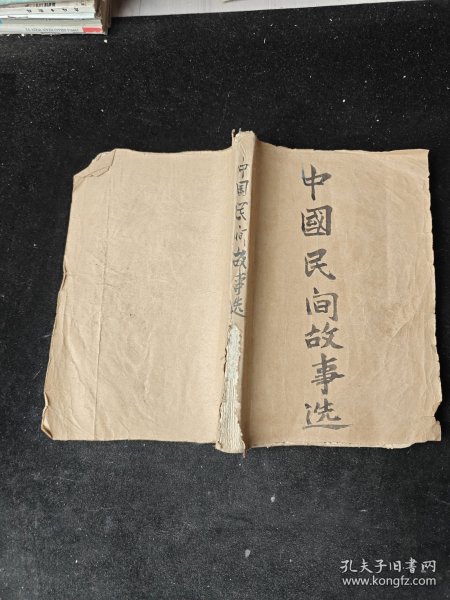 中國民间故事选
中国民间故事选
孔夫子旧书网
www.kongfz.com